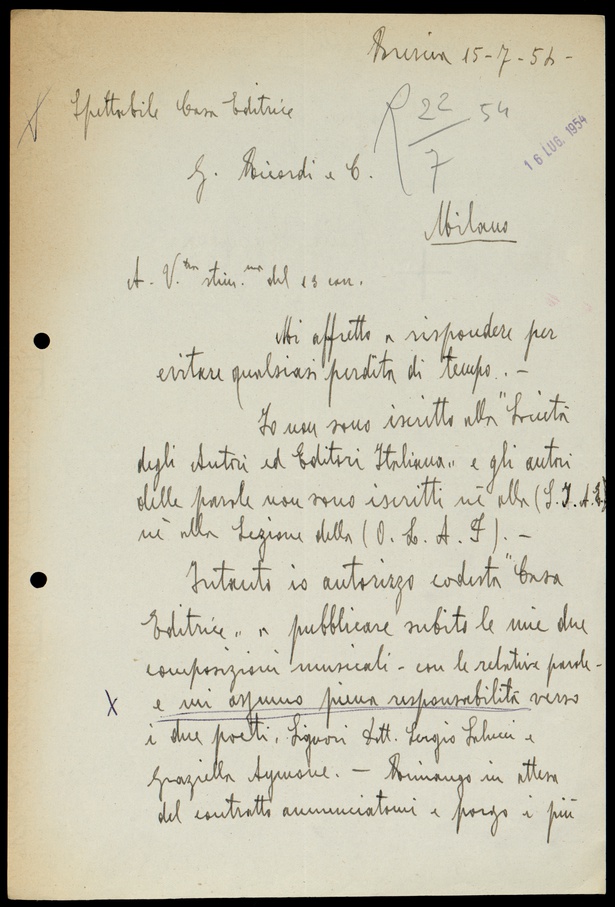 Brescia 15-7-54-
Spettabile Casa Editrice
22/7 54
16 LUG. 1954
G. Ricordi e C.
Milano
A. V.tra stim.ma del 13 corr.
Mi affretto a rispondere per
evitare qualsiasi perdita di tempo. -
Io non sono iscritto alla "Società
degli Autori ed Editori Italiana" e gli autori
delle parole non sono iscritti nè alla (S.I.A.E)
nè alla Sezione della (O. L. A. F). -
Intanto io autorizzo codesta "Casa
Editrice" a pubblicare subito le mie due
composizioni musicali - con le relative parole -
X e mi assumo piena responsabilità verso
i due poeti, Signori Dott. Sergio e
Graziella Aymone. - Rimango in attesa
del contratto annunciatomi e porgo i più